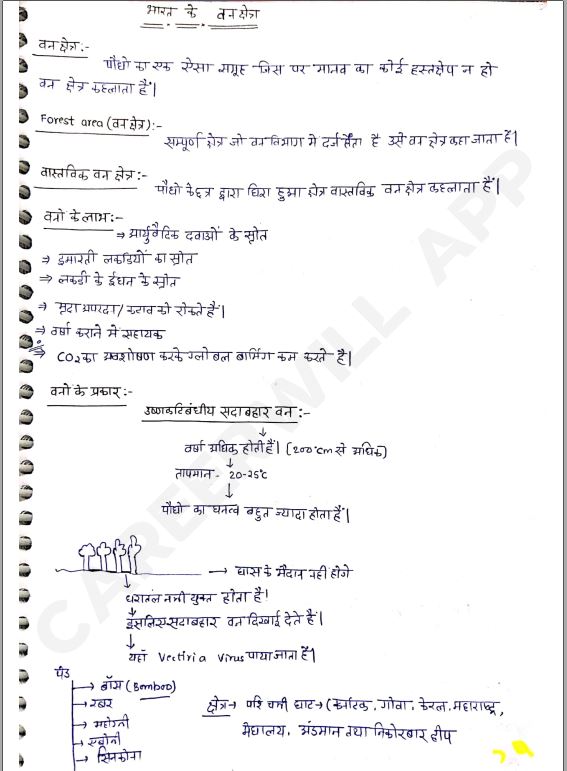 भारत के वनक्षेत्र
वन क्षेत्र:-
पौधों का एक ऐसा समूह जिस पर मानव का कोई हस्तक्षेप न हो
वन क्षेत्र कहलाता हैं।
Forest area (वन क्षेत्र):-
सम्पूर्ण क्षेत्र जो वन विभाग में दर्ज होता है उसे वन क्षेत्र कहा जाता हैं।
वास्तविक वन क्षेत्र:-
पौधों के द्वारा घिरा हुआ क्षेत्र वास्तविक वन क्षेत्र कहलाता हैं।
वनों के लाभ:-
⇒ आर्युवैदिक दवाओं के स्रोत
⇒ इमारती लकडियों का स्रोत
⇒ लकडी के ईंधन के स्रोत
⇒ मृदा अपरदा/कटाव को रोकते हैं।
⇒ वर्षा कराने में सहायक
⇒ CO2 का अवशोषण करके ग्लोबल वार्मिंग कम करते हैं।
वनों के प्रकार:-
उष्णकटिबंधीय सदाबहार वन:-
वर्षा अधिक होती हैं। (200 cm से अधिक)
तापमान - 20-25°c
पौधों का घनत्व बहुत ज्यादा होता हैं।
→ घास के मैदान नही होंगे
धरातल नमी युक्त होता हैं।
इसलिए सदाबहार वन दिखाई देते हैं।
यहाँ Vectiria Virus पाया जाता हैं।
पेड
→ बाँस (Bamboo)
→ रबर
→ महोगनी
→ एबोनी
→ सिनकोना
क्षेत्र → पश्चिमी घाट → (कर्नाटक, गोवा, केरल, महाराष्ट्र,
मेघालय, अंडमान तथा निकोरबार द्वीप
CAREERWILL APP